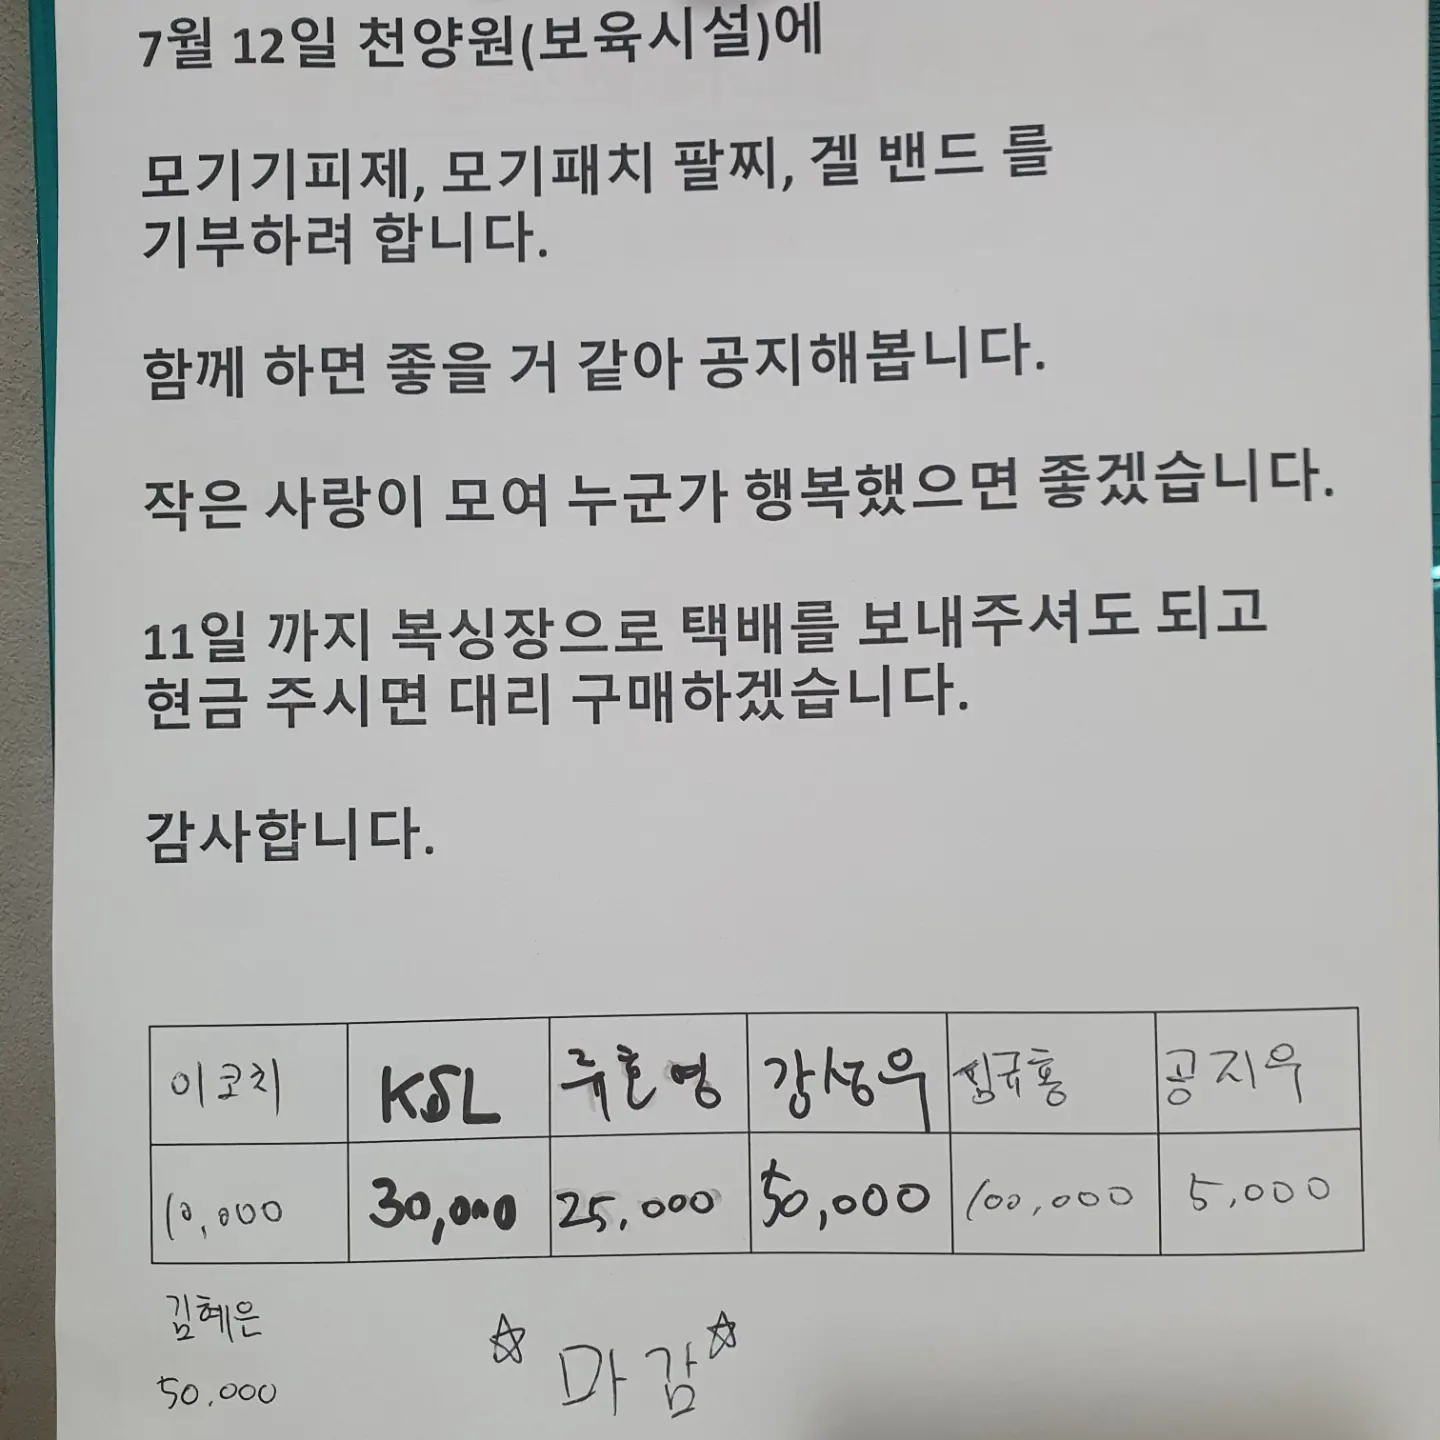 7월 12일 천양원(보육시설)에
모기기피제, 모기패치 팔찌, 겔 밴드 를
기부하려 합니다.
함께 하면 좋을 거 같아 공지해봅니다.
작은 사랑이 모여 누군가 행복했으면 좋겠습니다.
11일 까지 복싱장으로 택배를 보내주셔도 되고
현금 주시면 대리 구매하겠습니다.
감사합니다.
이코치 KSL 류호영 강성우 심규홍 공지우
10,000 30,000 25,000 50,000 100,000 5,000
김혜은
50.000
☆ 마감 ☆